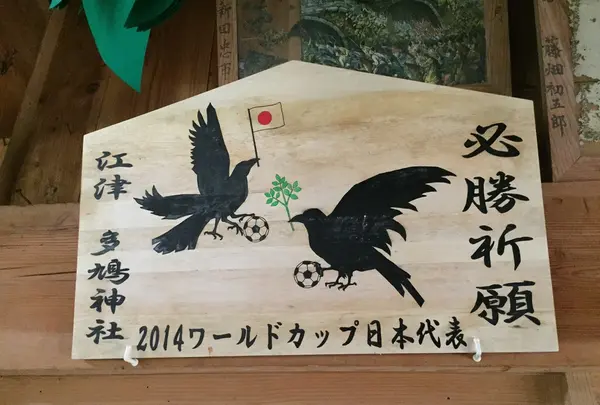 必勝祈願
江津 多鳩神社
2014ワールドカップ日本代表
新田忠市
藤畑初五郎